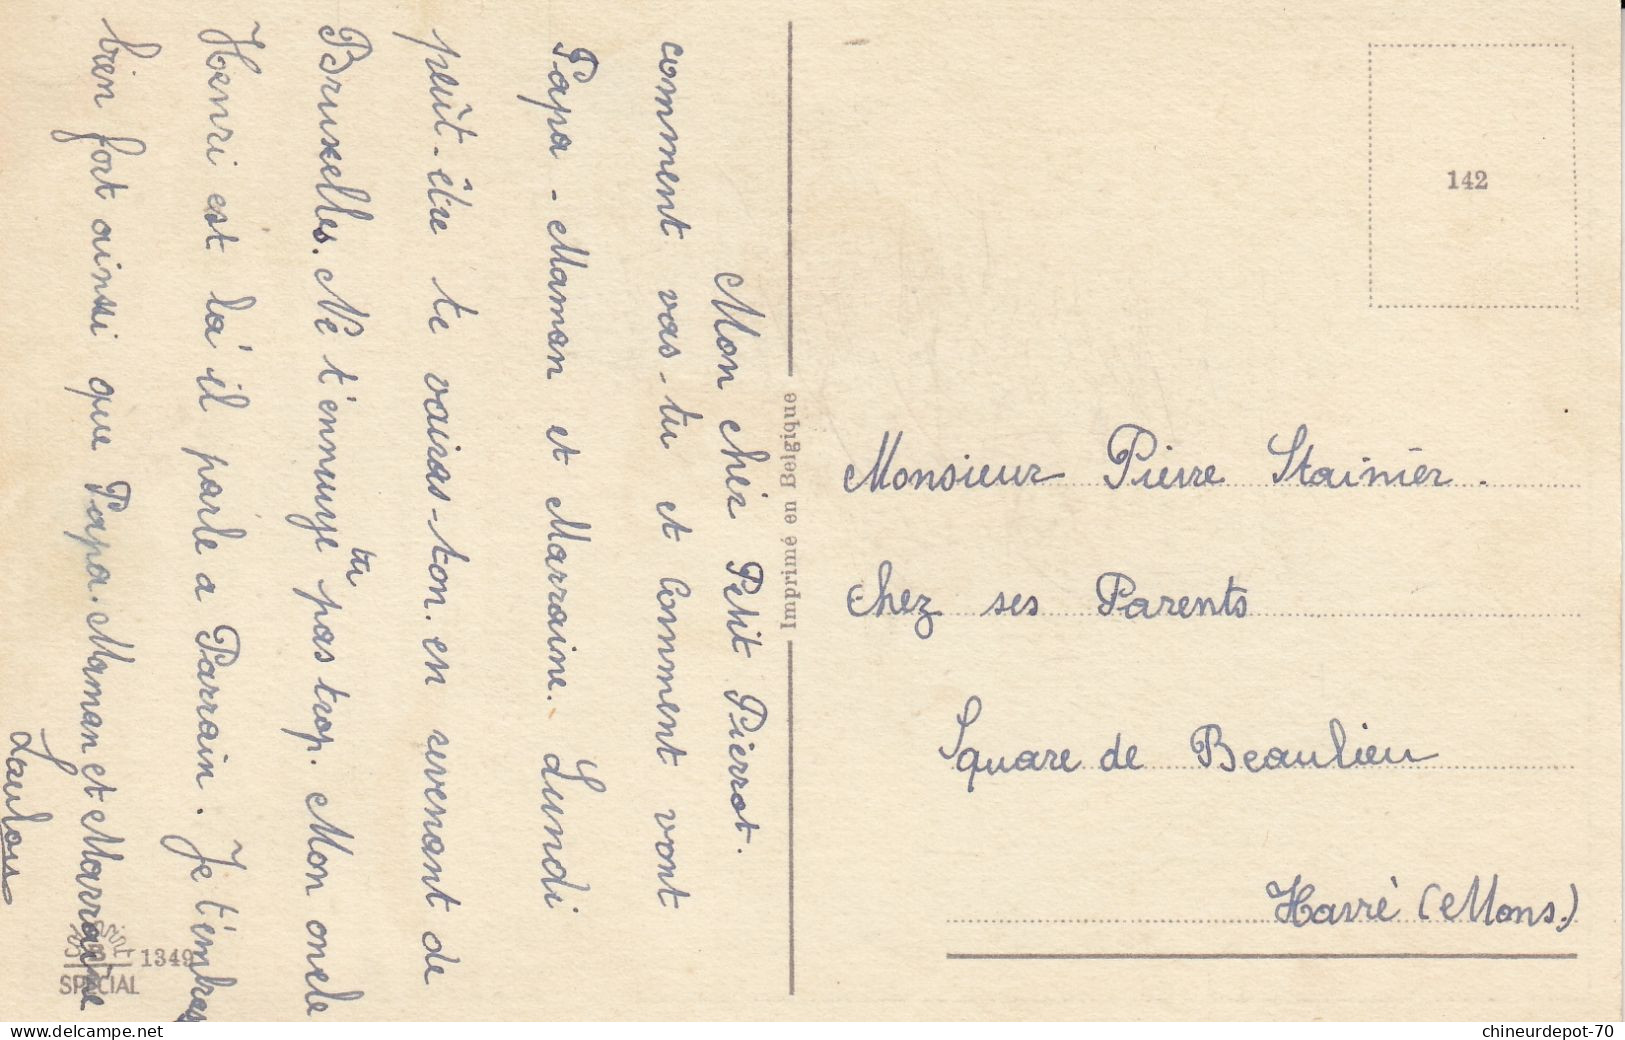 Mon cher Petit Pierrot.
comment vas-tu et comment vont
Papa - Maman et Marraine. Lundi
peût-être te vairas-ton. en revenant de
Bruxelles. Ne t'ennuye tu pas trop. Mon oncle
Henri est là il parle a Parrain. Je t'embres
bien fort ainsi que Papa. Maman et Marraine
Imprimé en Belgique
142
Monsieur Pierre Stainier.
Chez ses Parents
Square de Beaulieu
Havré (Mons.)
1349
SPECIAL
chineurdepot-70